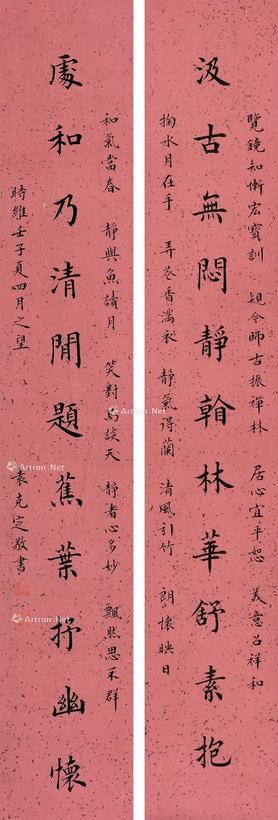 覽鏡知慚宏寶訓 規今師古振禪林 居心宜平恕 美意召祥和
汲古無悶靜翰林華舒素抱
掬水月在手 弄花香滿衣 靜氣得蘭 清風引竹 朗懷映日
和氣當春 靜與魚讀月 笑對鳥談天 靜者心多妙 飄然思不群
處和乃清閒題蕉葉抒幽懷
時維壬子夏四月之望
袁克定敬書
Artron.Net
Artron.Net
Artron.Net
Artron.Net
Artron.Net
Artron.Net